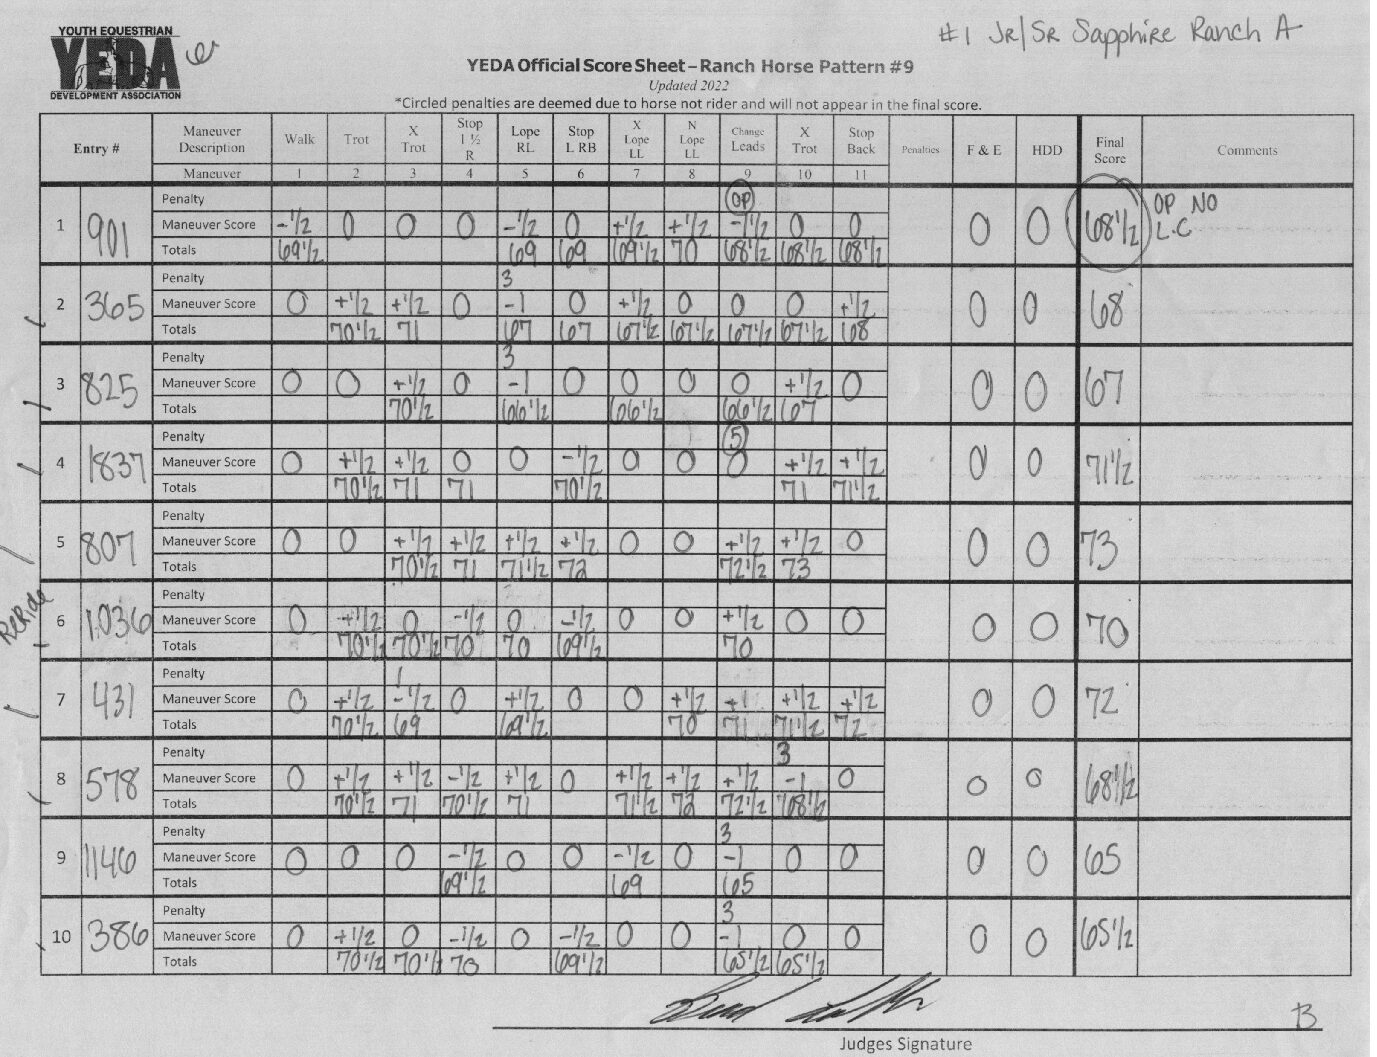 #1 JR/SR Sapphire Ranch A
YOUTH EQUESTRIAN
YEDA
DEVELOPMENT ASSOCIATION
YEDA Official Score Sheet – Ranch Horse Pattern #9
Updated 2022
*Circled penalties are deemed due to horse not rider and will not appear in the final score.
Entry # Maneuver Description Walk Trot X Trot Stop 1 ½ R Lope RL Stop L RB X Lope LL N Lope LL Change Leads X Trot Stop Back Penalties F & E HDD Final Score Comments
Maneuver 1 2 3 4 5 6 7 8 9 10 11
Penalty OP
1 901 Maneuver Score -1/2 0 0 0 -1/2 0 +1/2 +1/2 -1 1/2 0 0 0 0 68 1/2 OP NO L.C
Totals 69 1/2 69 69 69 1/2 70 68 1/2 68 1/2 68 1/2
Penalty 3
2 365 Maneuver Score 0 +1/2 +1/2 0 -1 0 +1/2 0 0 0 +1/2 0 0 68
Totals 70 1/2 71 67 67 67 1/2 67 1/2 67 1/2 67 1/2 68
Penalty 3
3 825 Maneuver Score 0 0 +1/2 0 -1 0 0 0 0 +1/2 0 0 0 67
Totals 70 1/2 66 1/2 66 1/2 66 1/2 67
Penalty 5
4 1837 Maneuver Score 0 +1/2 +1/2 0 0 -1/2 0 0 0 +1/2 +1/2 0 0 71 1/2
Totals 70 1/2 71 71 70 1/2 71 71 1/2
Penalty
5 807 Maneuver Score 0 0 +1/2 +1/2 +1/2 +1/2 0 0 +1/2 +1/2 0 0 0 73
Totals 70 1/2 71 71 1/2 72 72 1/2 73
ReRide
Penalty
6 1036 Maneuver Score 0 +1/2 0 -1/2 0 -1/2 0 0 +1/2 0 0 0 0 70
Totals 70 1/2 70 1/2 70 70 69 1/2 70
Penalty 1
7 431 Maneuver Score 0 +1/2 -1/2 0 +1/2 0 0 +1/2 +1 +1/2 +1/2 0 0 72
Totals 70 1/2 69 69 1/2 70 71 71 1/2 72
Penalty 3
8 578 Maneuver Score 0 +1/2 +1/2 -1/2 +1/2 0 +1/2 +1/2 +1/2 -1 0 0 0 68 1/2
Totals 70 1/2 71 70 1/2 71 71 1/2 72 72 1/2 68 1/2
Penalty 3
9 1146 Maneuver Score 0 0 0 -1/2 0 0 -1/2 0 -1 0 0 0 0 65
Totals 69 1/2 69 65
Penalty 3
10 386 Maneuver Score 0 +1/2 0 -1/2 0 -1/2 0 0 -1 0 0 0 0 65 1/2
Totals 70 1/2 70 1/2 70 69 1/2 65 1/2 65 1/2
B
Judges Signature